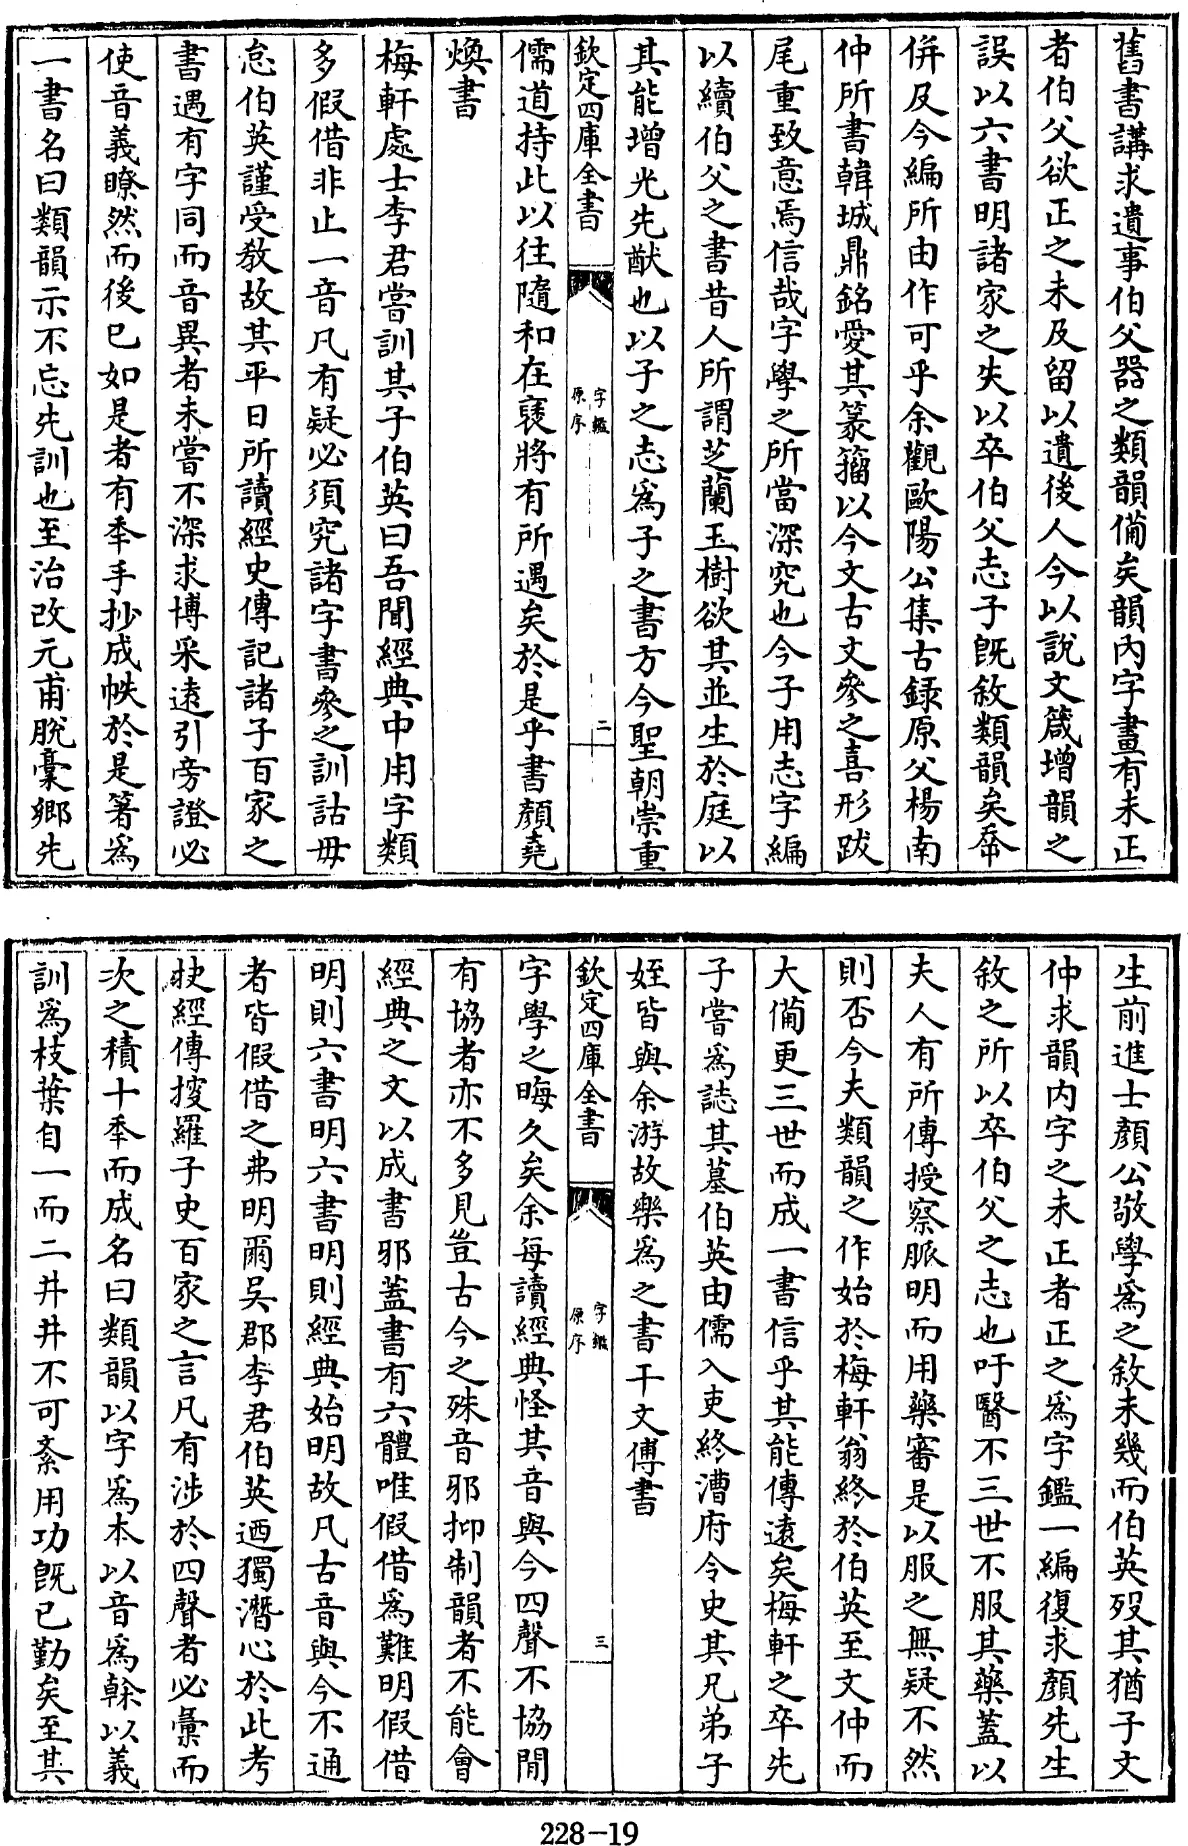 舊書講求遺事伯父器之類韻備矣韻內字畫有未正
者伯父欲正之未及留以遺後人今以說文箴增韻之
誤以六書明諸家之失以卒伯父志子旣敘類韻矣
併及今編所由作可乎余觀歐陽公集古錄原父楊南
仲所書韓城鼎銘愛其篆籀以今文古文參之喜形跋
尾重致意焉信哉字學之所當深究也今子用志字編
以續伯父之書昔人所謂芝蘭玉樹欲其並生於庭以
其能增光先猷也以子之志爲子之書方今聖朝崇重
欽定四庫全書
字鑑
原序
二
儒道持此以往隨和在裦將有所遇矣於是乎書顏堯
煥書
梅軒處士李君嘗訓其子伯英曰吾聞經典中用字類
多假借非止一音凡有疑必須究諸字書參之訓詁毋
怠伯英謹受教故其平日所讀經史傳記諸子百家之
書遇有字同而音異者未嘗不深求博采遠引旁證必
使音義瞭然而後已如是者有年手抄成帙於是著爲
一書名曰類韻示不忘先訓也至治改元甫脫稾鄉先
生前進士顏公敬學爲之敘未幾而伯英歿其猶子文
仲求韻內字之未正者正之爲字鑑一編復求顏先生
敘之所以卒伯父之志也吁醫不三世不服其藥蓋以
夫人有所傳授察脈明而用藥審是以服之無疑不然
則否今夫類韻之作始於梅軒翁終於伯英至文仲而
大備更三世而成一書信乎其能傳遠矣梅軒之卒先
子嘗爲誌其墓伯英由儒入吏終漕府令史其兄弟子
姪皆與余游故樂爲之書干文傅書
欽定四庫全書
字鑑
原序
三
字學之晦久矣余每讀經典怪其音與今四聲不協間
有協者亦不多見豈古今之殊音邪抑制韻者不能會
經典之文以成書邪蓋書有六體唯假借爲難明假借
明則六書明六書明則經典始明故凡古音與今不通
者皆假借之弗明爾吳郡李君伯英迺獨潛心於此考
史經傳搜羅子史百家之言凡有涉於四聲者必彙而
次之積十年而成名曰類韻以字爲本以音爲榦以義
訓爲枝葉自一而二井井不可紊用功旣已勤矣至其
228-19